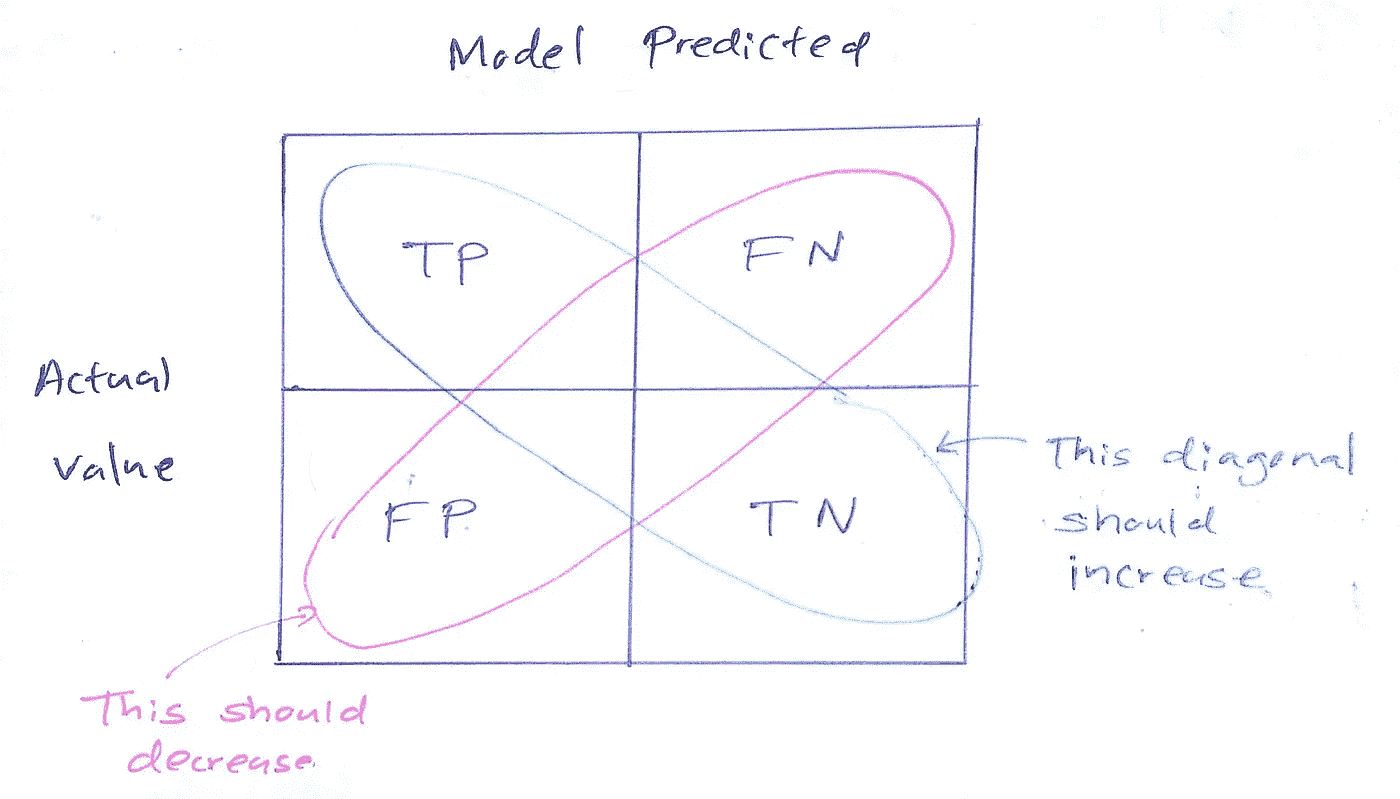 Model Predicted
TP
FN
Actual
value
FP
TN
This diagonal
should
increase
This should
decrease